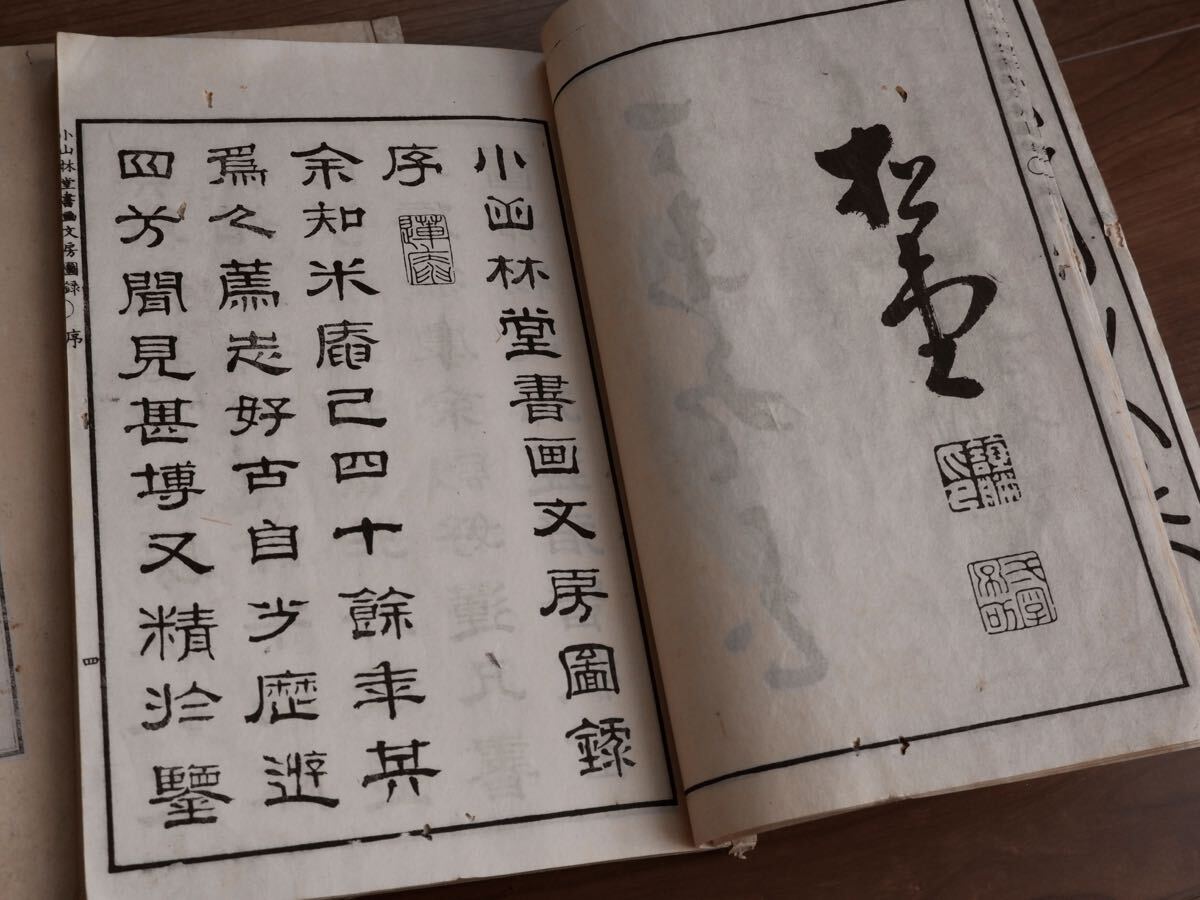 松堂
小山林堂書画文房圖錄
序
余知米庵已四十餘年其
爲之薦志好古自少歷遊
四方聞見甚博又精於鑒
小山林堂書畫文房圖録
序
四